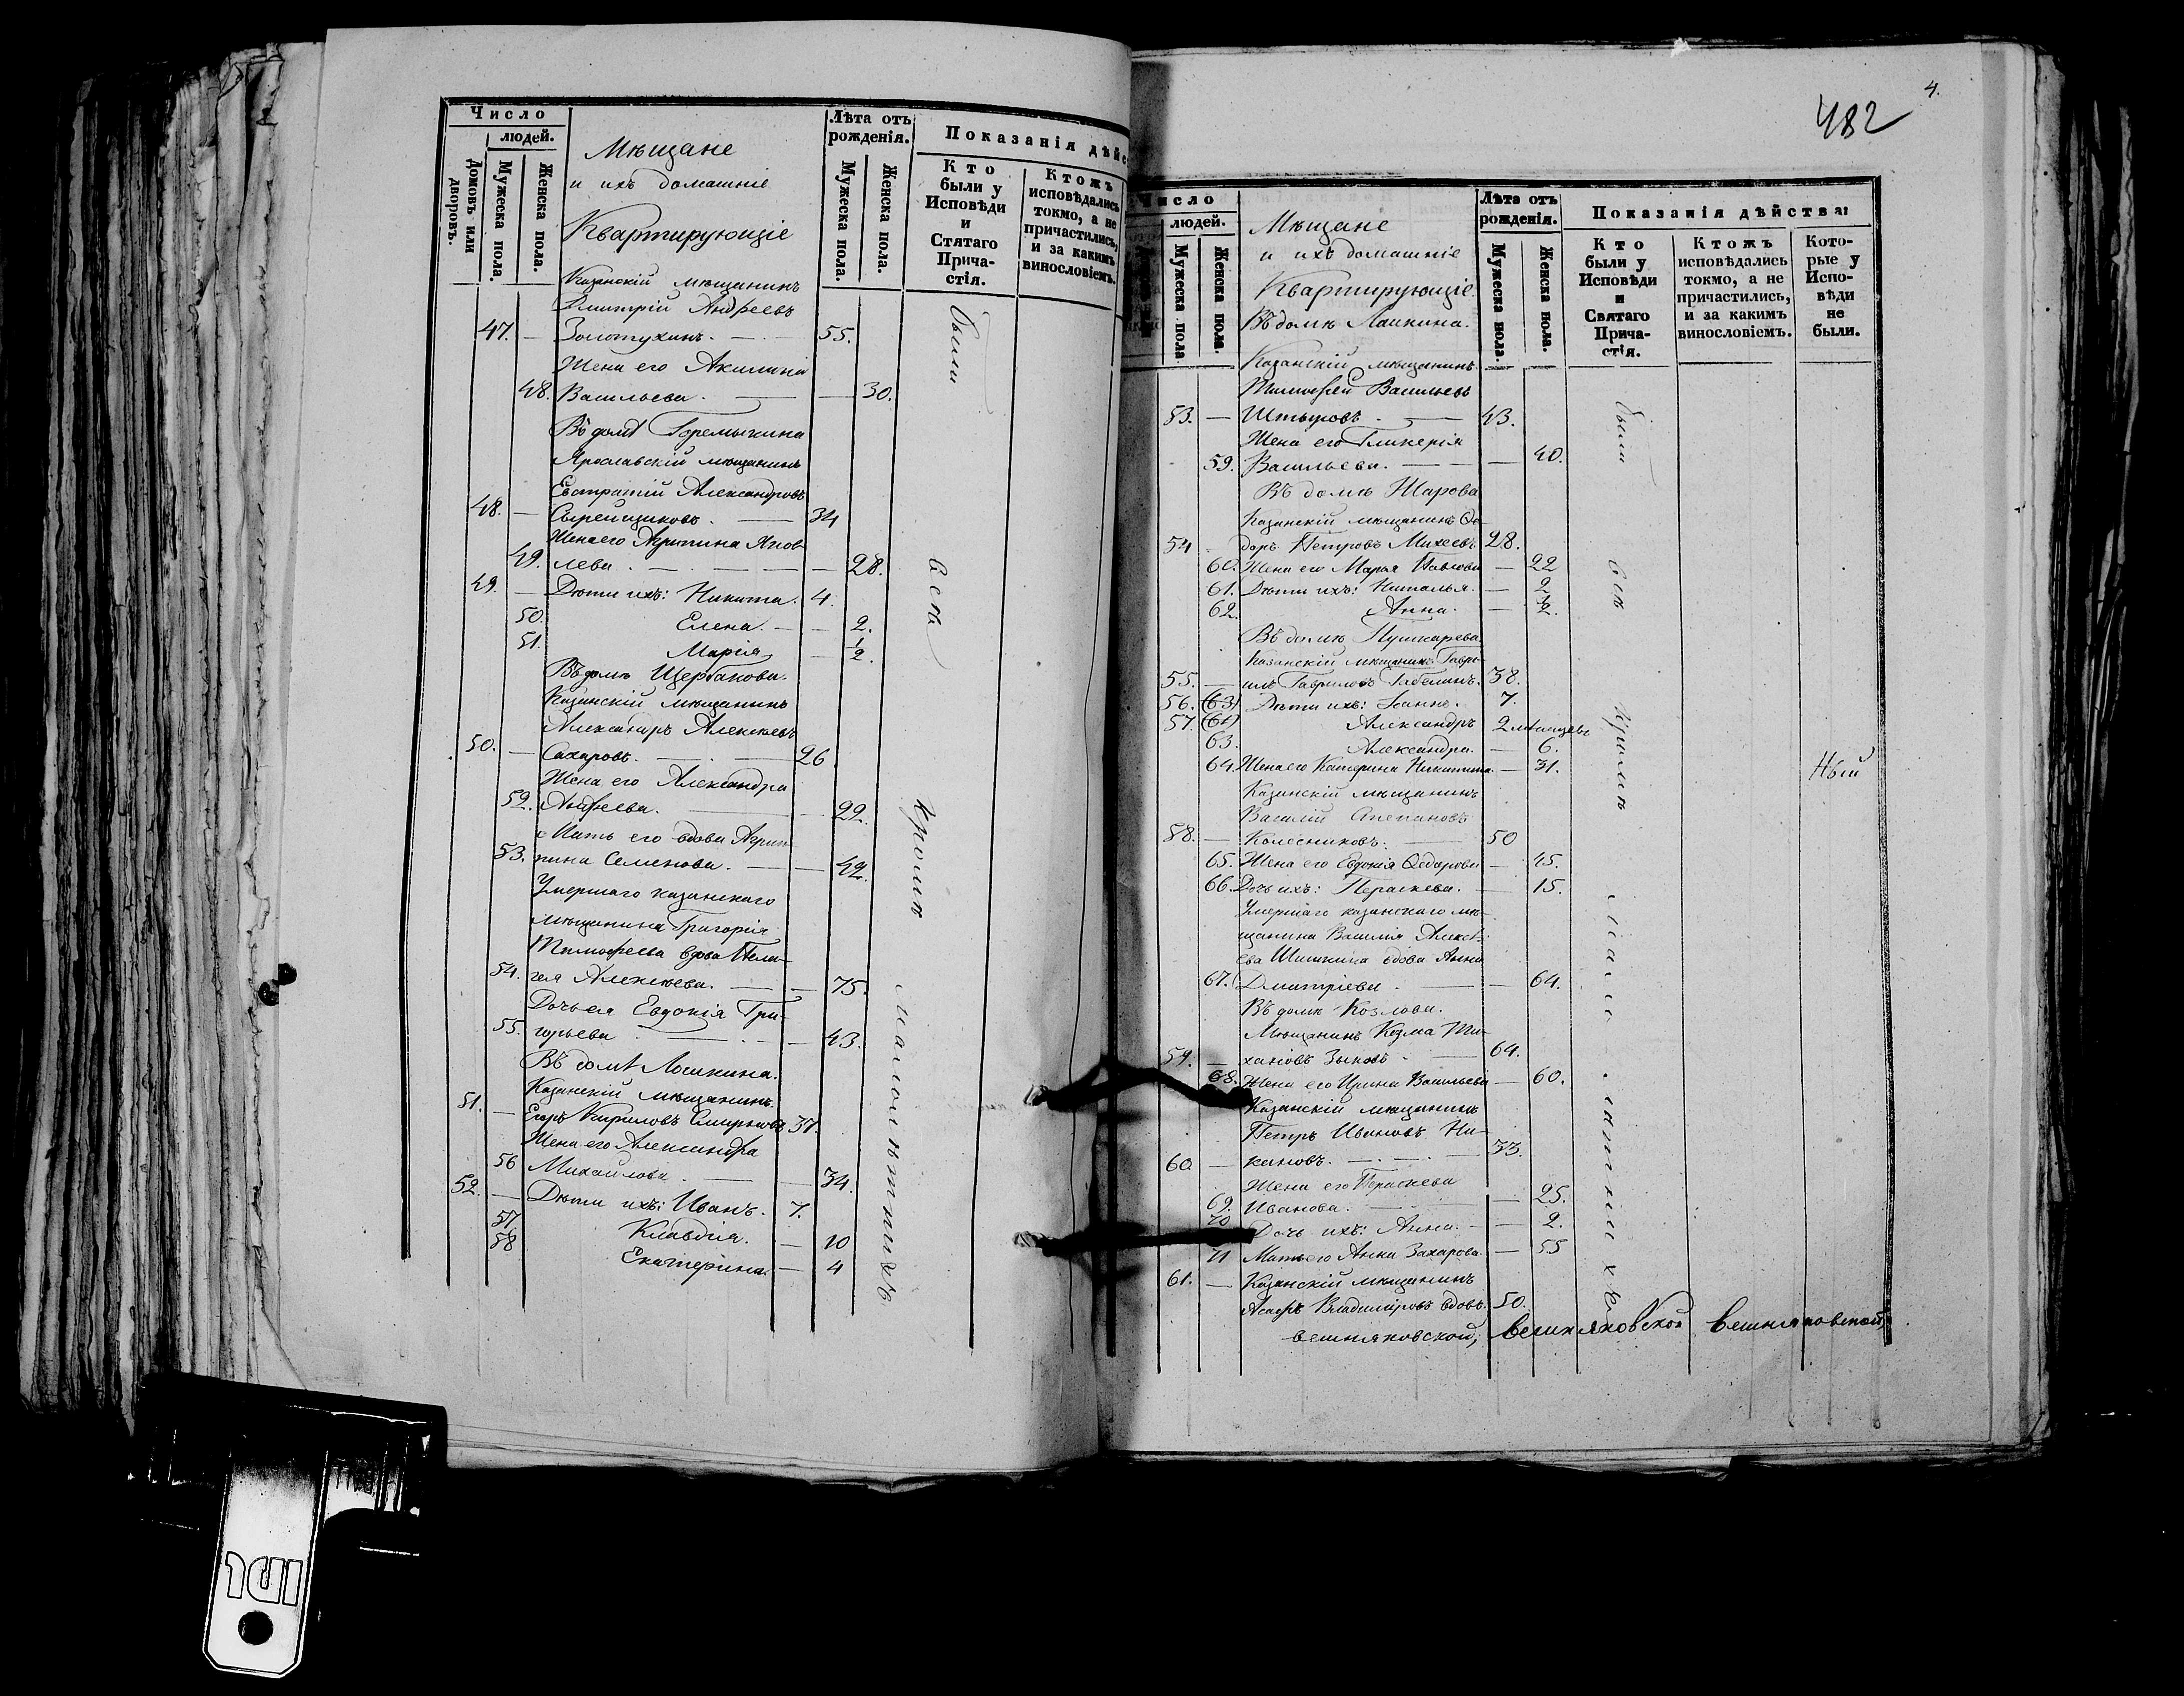 Число
людей.
Домовъ или дворовъ.
Мужеска пола.
Женска пола.
Мѣщане
и ихъ домашніе
Квартирующіе
Лѣта отъ рожденія.
Мужеска пола.
Женска пола.
Показанія дѣйс
Кто были у Исповѣди и Стятаго Прича- стія.
Ктожъ исповѣдались токмо, а не причастились, и за какимъ винословіемъ.
Казанскій мѣщанинъ
Дмитрій Андреевъ
47. — Золотухинъ. — 55.
Жена его Акилина
48. Васильева. — — 30.
Въ домѣ Горемыкина
Ярославскій мѣщанинъ
Евстратій Александровъ
48. — Сырейщиковъ. — 34
Жена его Агрипина Яков-
49. лева. — — 28.
49. — Дѣти ихъ: Никита. 4.
50. Елена. — — 2.
51. Марія — 1/2.
Въ домѣ Щербакова.
Казанскій мѣщанинъ
Александръ Алексѣевъ
50. — Сахаровъ. — 26
Жена его Александра
52. Андреева. — 22.
Мать его вдова Агрип-
53. пина Семенова. — — 42.
Умершаго казанскаго
мѣщанина Григорія
Тимофеева вдова Пела-
54. гея Алексѣева. — — 75.
Дочь ея Евдокія Гри-
55. горьева — — 43.
Въ домѣ Лошкина.
Казанскій мѣщанинъ
51. — Егоръ Кириловъ Смирновъ 37.
Жена его Александра
56 Михайлова. — 34.
52. — Дѣти ихъ: Иванъ. 7.
57 Клавдія. — 10
58 Екатерина. — 4
были
всѣ
кромѣ
малолѣтнихъ
4.
482
Число
людей.
Мужеска пола
Женска пола.
Мѣщане
и ихъ домашніе
Квартирующіе.
Лѣта отъ рожденія.
Мужеска пола.
Женска пола.
Показанія дѣйства:
Кто были у Исповѣди и Святаго Прича- стія.
Ктожъ исповѣдались токмо, а не причастились, и за какимъ винословіемъ.
Кото- рые у Испо- вѣди не были.
Въ домѣ Лашкина.
Казанскій мѣщанинъ
Тимофей Васильевъ
53. — Штыровъ. — 43.
Жена его Гликерія
59. Васильева. — — 40.
Въ домѣ Шарова
Казанскій мѣщанинъ Ѳе-
54 доръ Петровъ Михеевъ 28.
60. Жена его Марья Павлова — 22
61. Дѣти ихъ: Наталья. — 2
62. Анна. — 1/2.
Въ домѣ Пушкарева.
Казанскій мѣщанинъ Гаврі-
55. — илъ Гавриловъ Габелинъ. 38.
56. (63) Дѣти ихъ: Іоаннъ. 7.
57. (64) Александръ 2 мѣсяцевъ
63. Александра. — 6.
64. Жена его Катерина Никитина. — 31.
Казанскій мѣщанинъ
Василій Степановъ
58. — Колесниковъ. — 50
65. Жена его Евдокія Ѳедорова — 45.
66. Дочь ихъ: Параскева. — 15.
Умершаго казанскаго мѣ-
щанина Василія Алексѣ-
ева Шишкина вдова Анна
67. Дмитріева. — — 64.
Въ домѣ Козлова.
Мѣщанинъ Козма Ти-
59. — хановъ Зыковъ. — 64.
68. Жена его Ирина Васильева — 60.
Казанскій мѣщанинъ
Петръ Ивановъ Ни-
60 — кановъ. — 33.
Жена его Параскева
69. Иванова. — 25.
70 Дочь ихъ: Анна. — — 2.
71 Мать его Анна Захарова. — 55
61. — Казанскій мѣщанинъ
Асафъ Владиміровъ вдовъ. 50.
были
всѣ
кромѣ
малолѣтнихъ
Ный
вешняковской, вешняковской вешняковской,